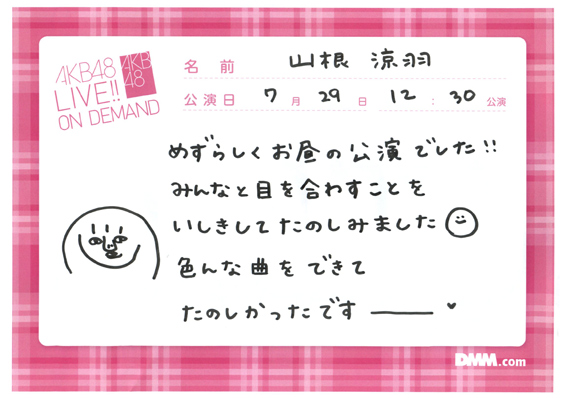 AKB48
LIVE!!
ON DEMAND
AKB
48
名前 山根 涼羽
公演日 7月29日 12:30公演
めずらしくお昼の公演でした!!
みんなと目を合わすことを
いしきしてたのしみました
色んな曲をできて
たのしかったです ——— ♥
DMM.com